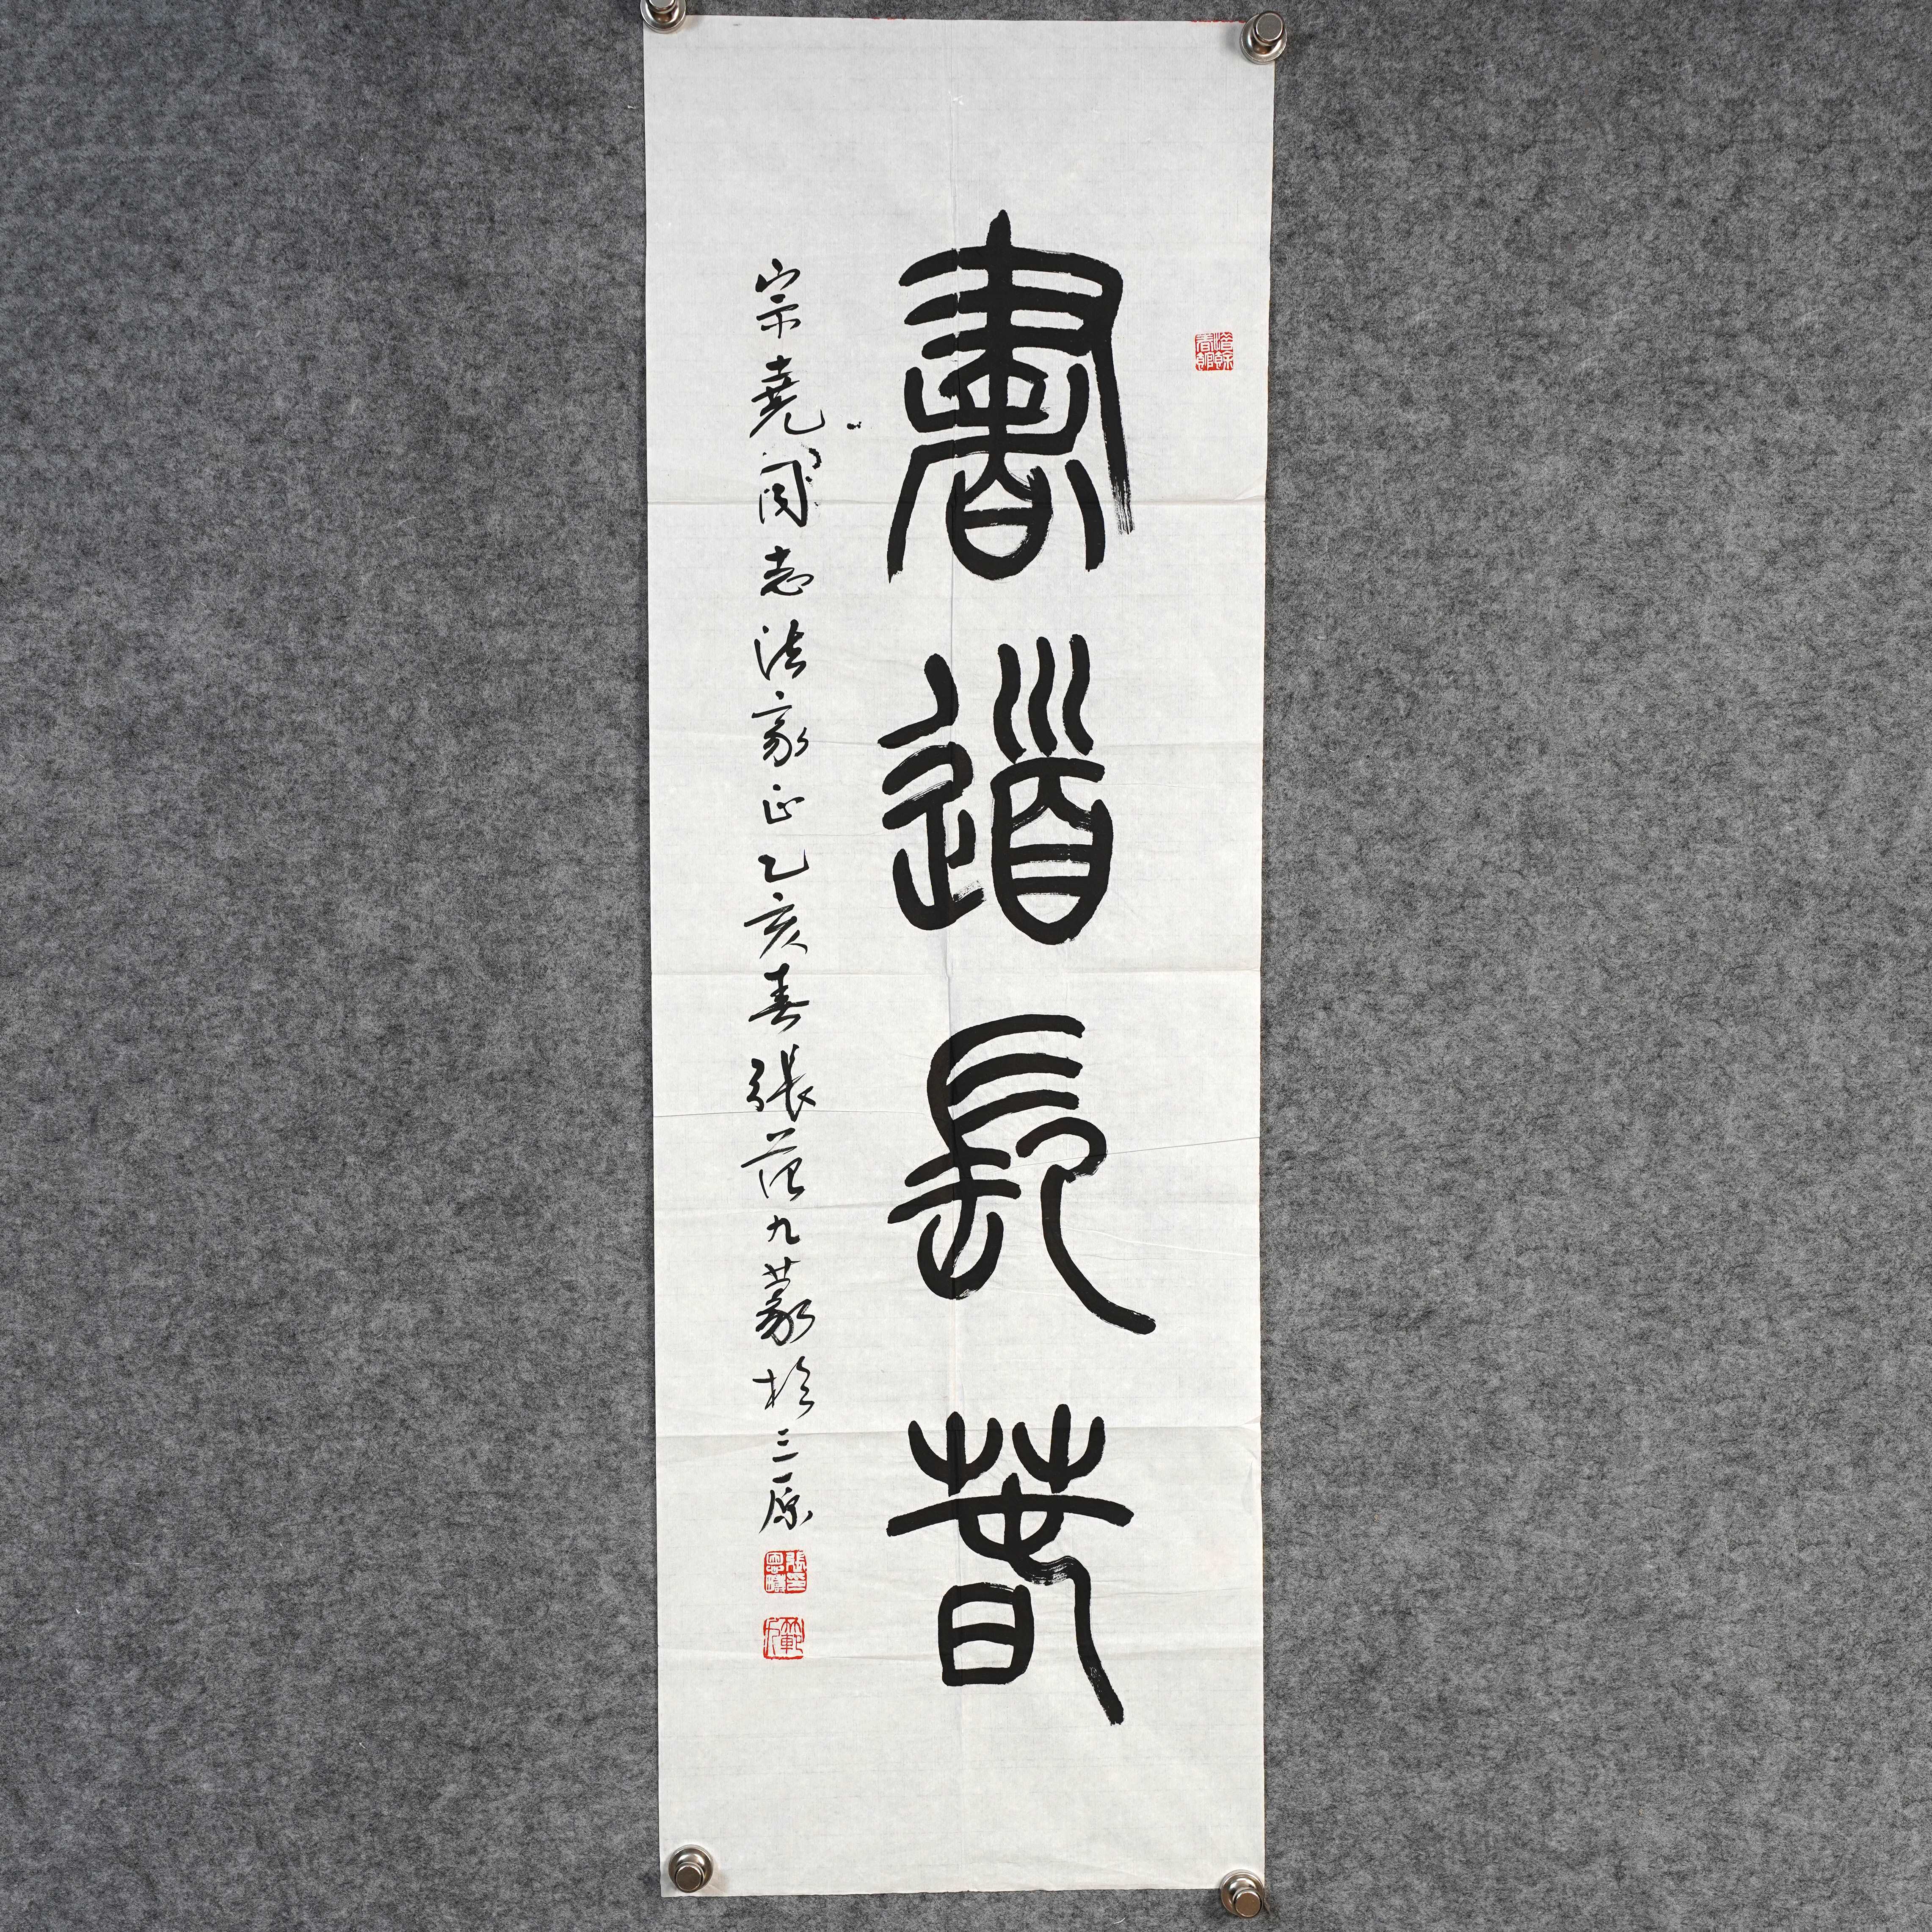 書道長春
宗堯同志法家正乙亥春張範九篆於三原